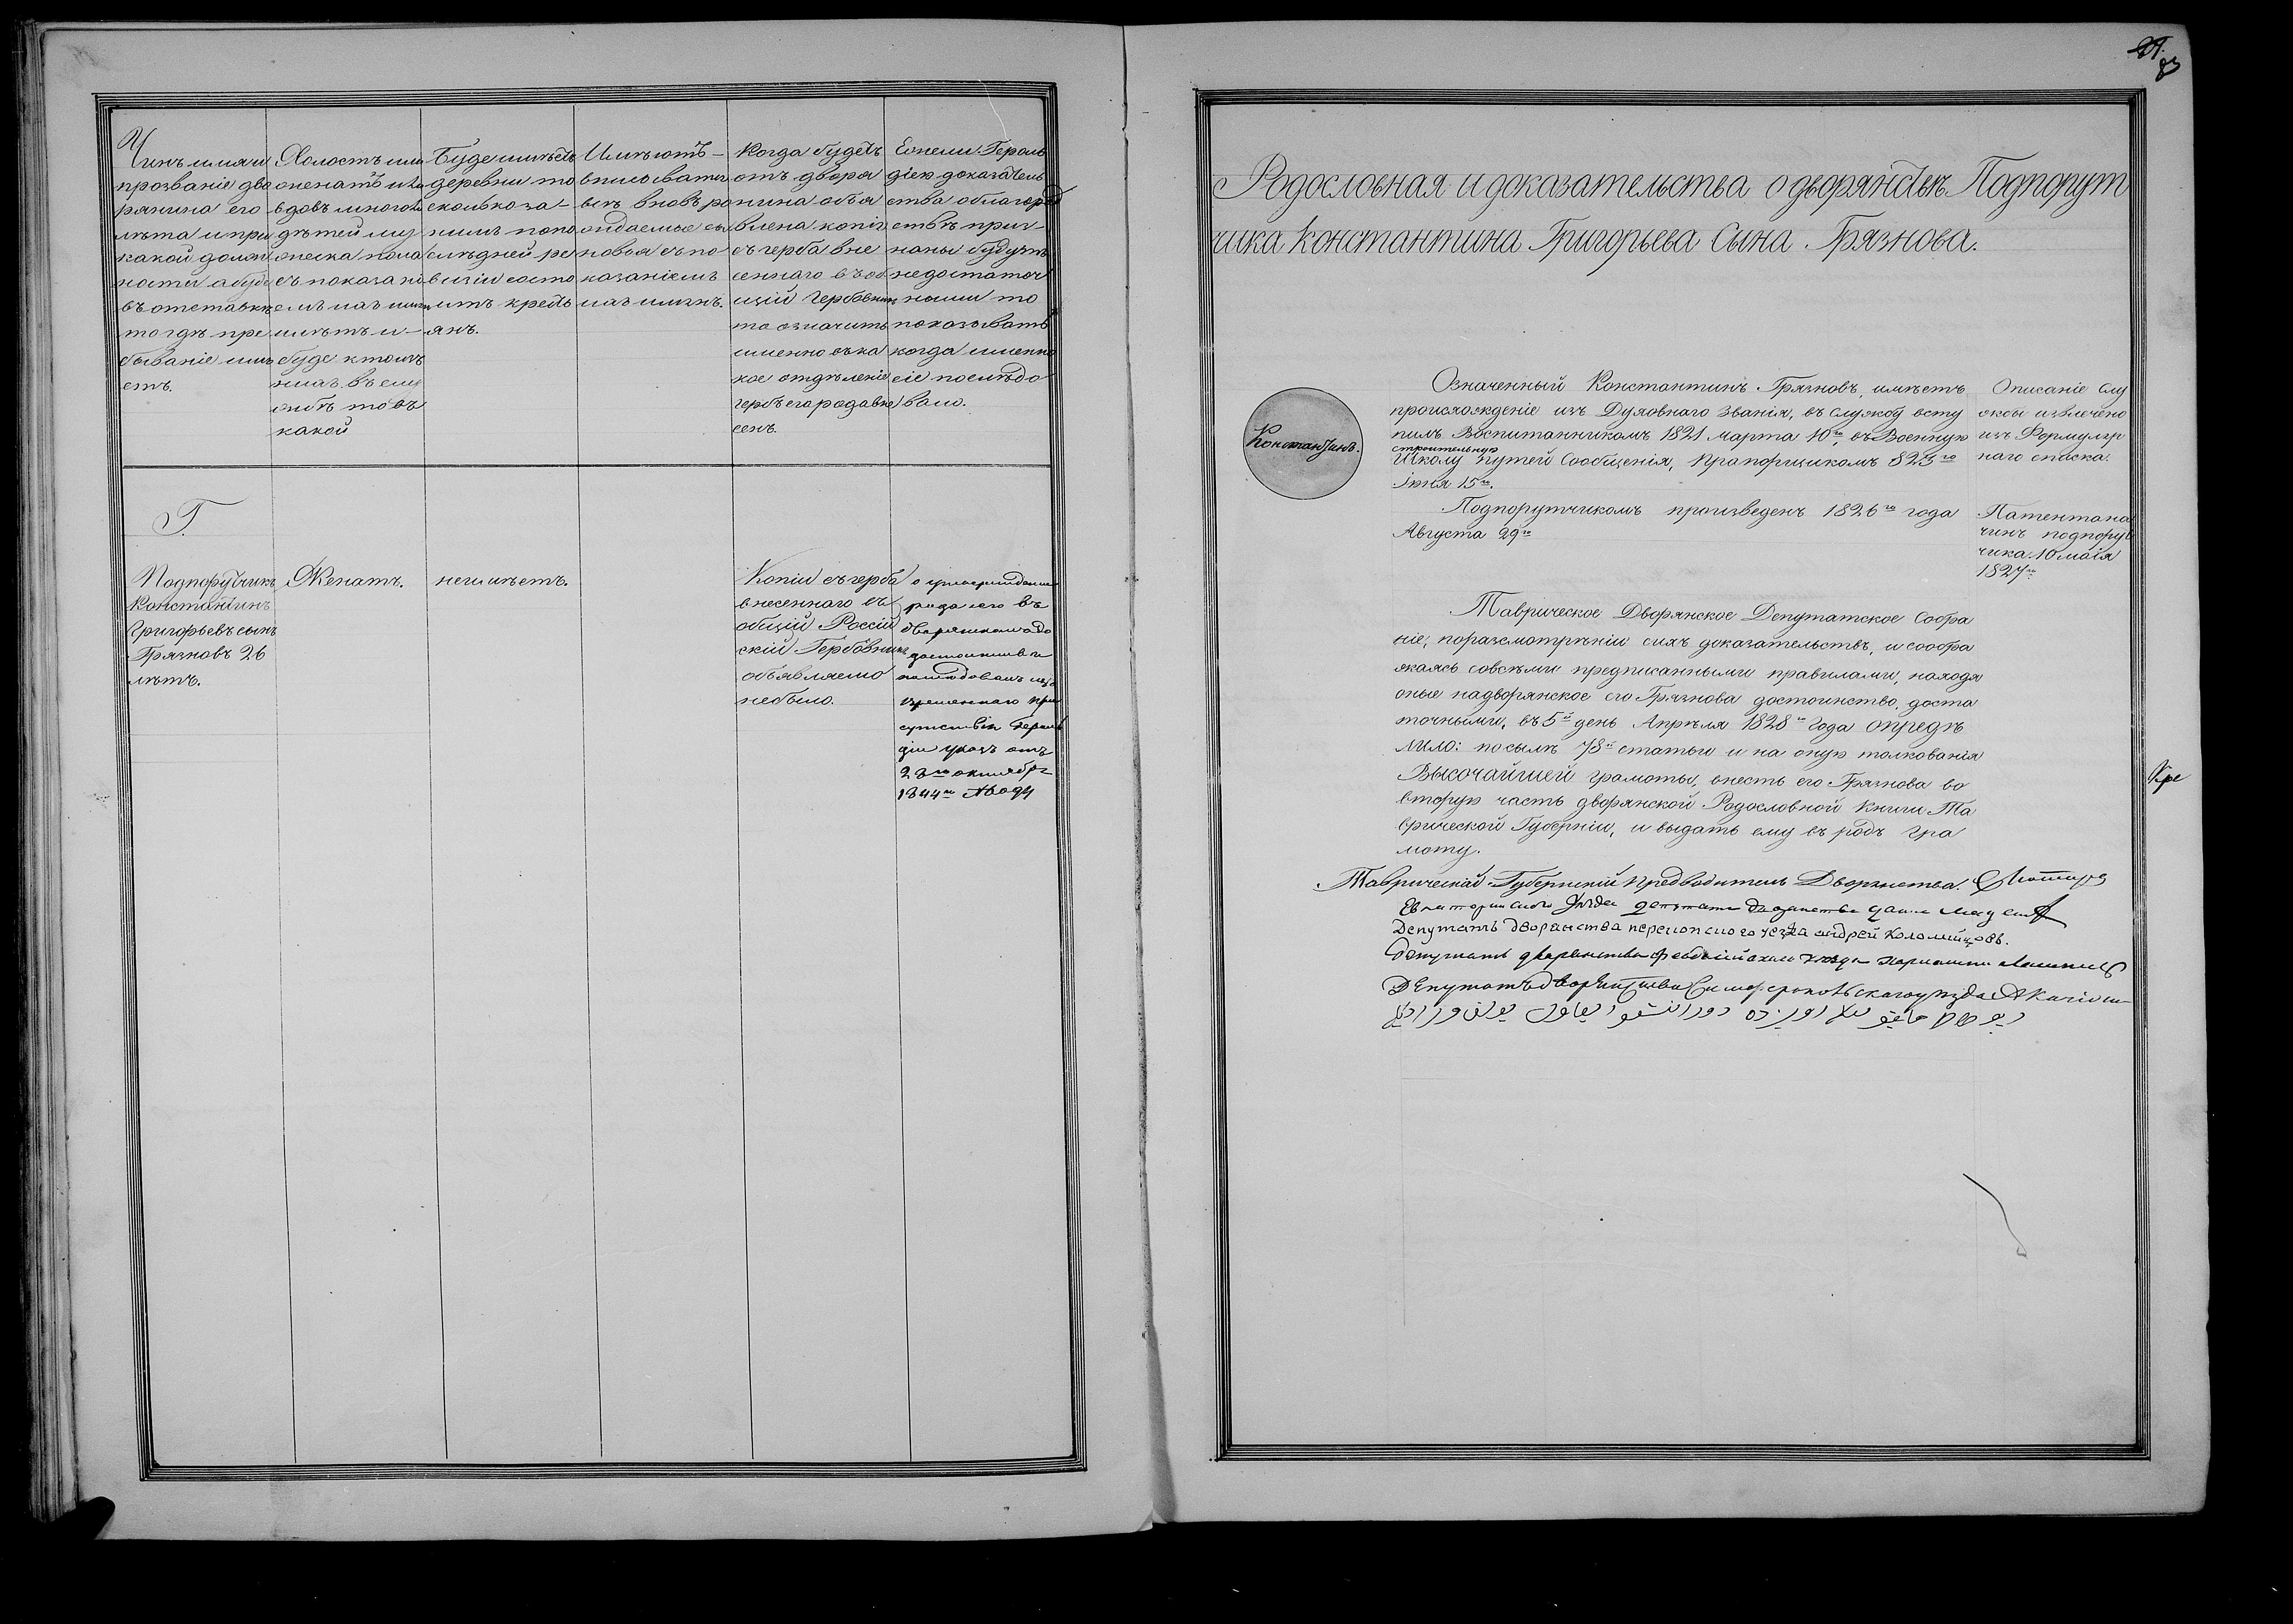 Чинъ имя и
прозваніе дво
рянина его
лѣта и при
какой долж
ности а буде
въ отставкѣ
то гдѣ пре
бываніе имѣ
етъ.
Холостъ или
женатъ или
вдовъ много ли
дѣтей му
жеска пола
съ показані
емъ лѣтъ
имѣтъ и
буде кто изъ
нихъ въ слу
жбѣ то въ
какой
Буде имѣетъ
деревни то
сколько за
нимъ попо
слѣдней ре
визіи состо
итъ кресть
янъ.
Имѣютъ
вписыватся
всѣ вновь ро
ждаемые сы
новья съ по
казаніемъ
лѣтъ имянъ.
Когда будетъ
отъ дворя
нина объя
влена копія
съ герба вне
сеннаго въ об
щій Гербовникъ
то означить
именно въ ка
кое отдѣленіе
гербъ его рода вне
сенъ.
Ежели Героль
діею доказатель
ства облагород
ствѣ приз
наны будутъ
недостаточ
ными то
показывать
когда именно
сіе послѣдо
вало.
Г.
Подпорутчикъ
Константинъ
Григорьевъ сынъ
Грязновъ 26
лѣтъ.
Женатъ.
неимѣетъ.
Копіи съ герба
внесеннаго въ
общій Россій
скій Гербовникъ
объявляемо
небыло.
о утвержденіи
рода его въ
дворянскомъ до
стоинствѣ
послѣдовалъ изъ
временнаго при
сутствія Героль
діи указъ отъ
28го октября
1844го №
Родословная и доказательства о дворянствѣ Подпорут
чика Константина Григорьева Сына Грязнова.
Константинъ.
Означенный Константинъ Грязновъ, имѣетъ
происхожденіе изъ Духовнаго званія, въ службу всту
пилъ Воспитанникомъ 1821 марта 10го, въ Военную
строительную
Школу путей Сообщенія, Прапорщикомъ 823го
Іюня 15го.
Подпорутчикомъ произведенъ 1826го года
Августа 29го
Описаніе слу
жбы извлечено
изъ Формуляр
наго списка.
Патентъ на
чинъ подпорут
чика 10 маія
1827го
Таврическое Дворянское Депутатское Собра
ніе, поразсмотрѣніи сихъ доказательствъ, и сообра
жаясь совсѣми предписанными правилами, находя
оные надворянское его Грязнова достоинство, доста
точными, въ 5й день Апрѣля 1828го Года опредѣ
лило: по силѣ 78й статьи и на оную толкованія
Высочайшей грамоты, внесть его Грязнова во
вторую часть дворянской Родословной Книги Та
врической Губерніи, и выдать ему въ родъ гра
моту.
Таврическій Губернскій Предводитель Дворянства.
Депутатъ дворянства перекопскаго уезда андрей Коломийцовъ.
Депутатъ дворянства Феодосійскаго уезда
Депутатъ дворянства Симферопольскаго уѣзда